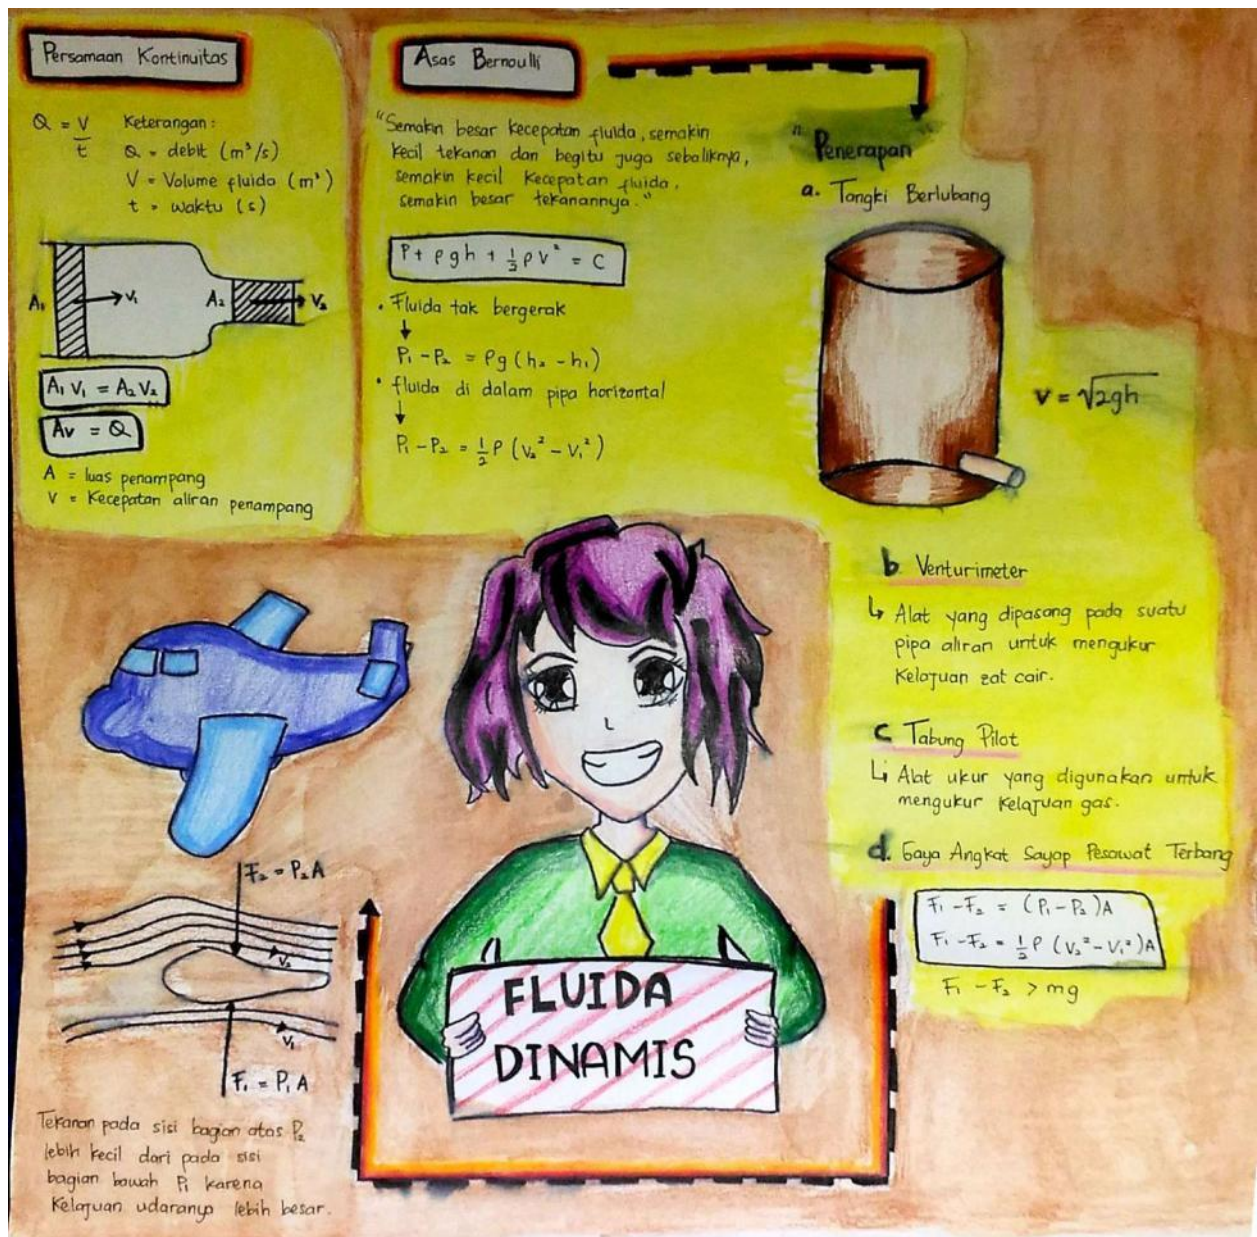 Persamaan Kontinuitas
Q = V/t
Keterangan :
Q = debit (m³/s)
V = Volume fluida (m³)
t = waktu (s)
A₁
V₁
A₂
V₂
A₁ V₁ = A₂ V₂
Av = Q
A = luas penampang
V = Kecepatan aliran penampang
Asas Bernoulli
"Semakin besar kecepatan fluida, semakin
kecil tekanan dan begitu juga sebaliknya,
semakin kecil kecepatan fluida,
semakin besar tekanannya."
P + ρgh + ½ ρV² = C
• Fluida tak bergerak
↓
P₁ - P₂ = ρg (h₂ - h₁)
• fluida di dalam pipa horizontal
↓
P₁ - P₂ = ½ ρ (V₂² - V₁²)
"Penerapan"
a. Tangki Berlubang
V = √2gh
b Venturimeter
↳ Alat yang dipasang pada suatu
pipa aliran untuk mengukur
Kelajuan zat cair.
c Tabung Pilot
↳ Alat ukur yang digunakan untuk
mengukur kelajuan gas.
d. Gaya Angkat Sayap Pesawat Terbang
F₁ - F₂ = (P₁ - P₂)A
F₁ - F₂ = ½ ρ (V₂² - V₁²)A
F₁ - F₂ > mg
F₂ = P₂ A
V₂
V₁
F₁ = P₁ A
Tekanan pada sisi bagian atas P₂
lebih kecil dari pada sisi
bagian bawah P₁ karena
Kelajuan udaranya lebih besar.
FLUIDA
DINAMIS